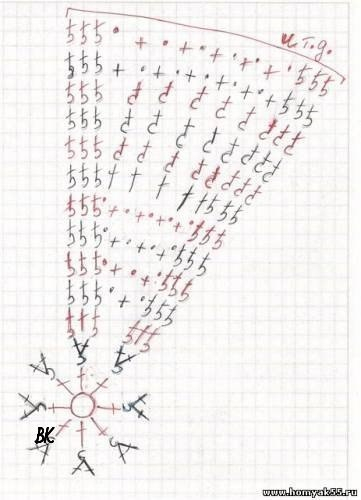 и т.д.
ВК
www.homyak55.ru